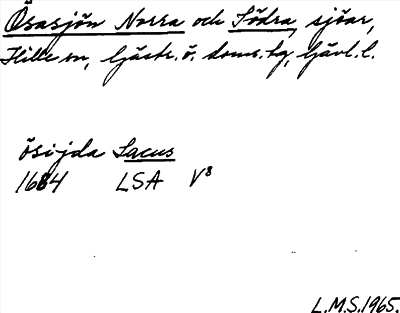 Ösasjön Norra och Södra, sjöar,
Hille sn, Gästr. ö. doms.hg, Gävl. l.
ösijda Lacus
1684 LSA V8
L.M.S. 1965.